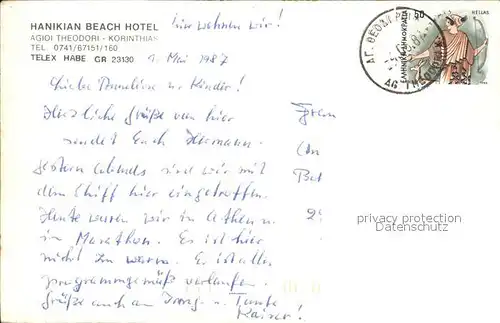 HANIKIAN BEACH HOTEL
AGIOI THEODORI - KORINTHIAS
TEL. 0741/67151/160
TELEX HABE GR 23130
hier wohnen wir!
1. Mai 1987
Liebe Anneliese u. Kinder!
Herzliche Grüße von hier
sendet Euch Hermann.
Gestern abends sind wir mit
dem Schiff hier eingetroffen.
Heute waren wir in Athen u.
in Marathon. Es ist hier
nicht zu warm. Es ist alles
programmgemäß verlaufen.
Grüße auch an u. Tante
Kaiser!
50
ΕΛΛΗΝΙΚΗ ΔΗΜΟΚΡΑΤΙΑ
HELLAS
ΑΓ. ΘΕΟΔΩΡΟΙ
AG. THEODOROI
privacy protection
Datenschutz